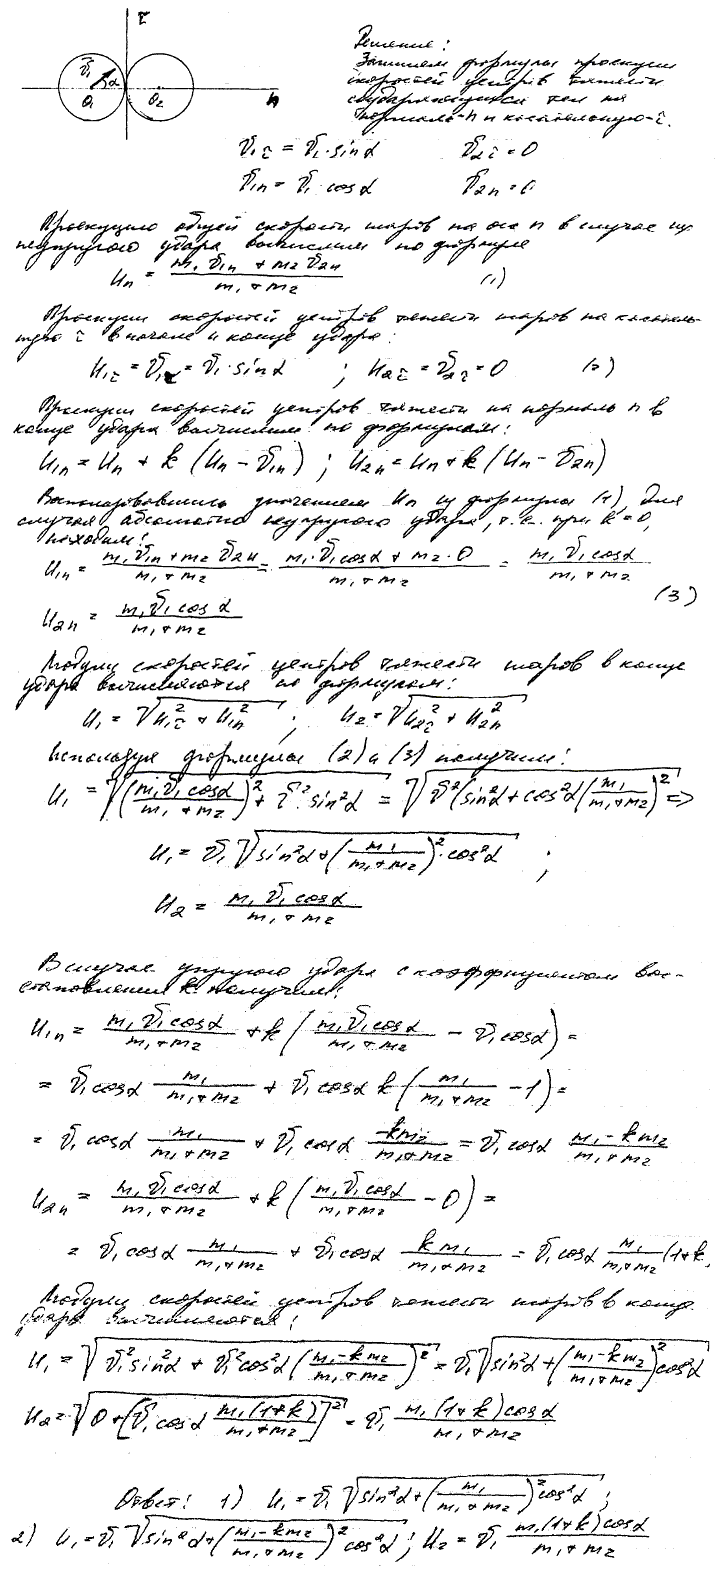 τ
v̄₁ α
O₁ O₂ n
Решение:
Запишем формулы проекции
скоростей центров тяжести
соударяющихся тел на
нормаль-n и касательную-τ.
v₁τ = v₁·sinα v₂τ = 0
v₁n = v₁·cosα v₂n = 0
Проекцию общей скорости шаров на ось n в случае их
неупругого удара вычислим по формуле
Un = (m₁v₁n + m₂v₂n)/(m₁+m₂) (1)
Проекции скоростей центров тяжести шаров на касатель-
ную τ в начале и конце удара:
U₁τ = v₁τ = v₁·sinα ; U₂τ = v₂τ = 0 (2)
Проекции скоростей центров тяжести на нормаль n в
конце удара вычислим по формулам:
U₁n = Un + k (Un - v₁n) ; U₂n = Un + k (Un - v₂n)
Воспользовавшись значением Un из формулы (1) для
случая абсолютно неупругого удара, т.к. при k=0,
находим:
U₁n = (m₁v₁n + m₂v₂n)/(m₁+m₂) = (m₁·v₁cosα + m₂·0)/(m₁+m₂) = (m₁v₁cosα)/(m₁+m₂)
(3)
U₂n = (m₁v₁cosα)/(m₁+m₂)
Модули скоростей центров тяжести шаров в конце
удара вычисляются по формулам:
U₁ = √(U₁τ² + U₁n²) ; U₂ = √(U₂τ² + U₂n²)
Используя формулы (2) и (3) получим:
U₁ = √(((m₁v₁cosα)/(m₁+m₂))² + v²·sin²α) = √(v²(sin²α + cos²α(m₁/(m₁+m₂))²) =>
U₁ = v₁√(sin²α + (m₁/(m₁+m₂))²·cos²α) ;
U₂ = (m₁v₁cosα)/(m₁+m₂)
В случае упругого удара с коэффициентом вос-
становления k получим:
U₁n = (m₁v₁cosα)/(m₁+m₂) + k((m₁v₁cosα)/(m₁+m₂) - v₁cosα) =
= v₁cosα m₁/(m₁+m₂) + v₁cosα k (m₁/(m₁+m₂) - 1) =
= v₁cosα m₁/(m₁+m₂) + v₁cosα (-km₂)/(m₁+m₂) = v₁cosα (m₁-km₂)/(m₁+m₂)
U₂n = (m₁v₁cosα)/(m₁+m₂) + k((m₁v₁cosα)/(m₁+m₂) - 0) =
= v₁cosα m₁/(m₁+m₂) + v₁cosα km₁/(m₁+m₂) = v₁cosα m₁/(m₁+m₂) (1+k
Модули скоростей центров тяжести шаров в конце
удара вычисляются:
U₁ = √(v₁²sin²α + v₁²cos²α((m₁-km₂)/(m₁+m₂))²) = v₁√(sin²α + ((m₁-km₂)/(m₁+m₂))²cos²α)
U₂ = √(0 + [v₁cosα (m₁(1+k))/(m₁+m₂)]²) = v₁ (m₁(1+k)cosα)/(m₁+m₂)
Ответ: 1) U₁ = v₁√(sin²α + (m₁/(m₁+m₂))²cos²α) ;
2) U₁ = v₁√(sin²α + ((m₁-km₂)/(m₁+m₂))²cos²α) ; U₂ = v₁ (m₁(1+k)cosα)/(m₁+m₂)